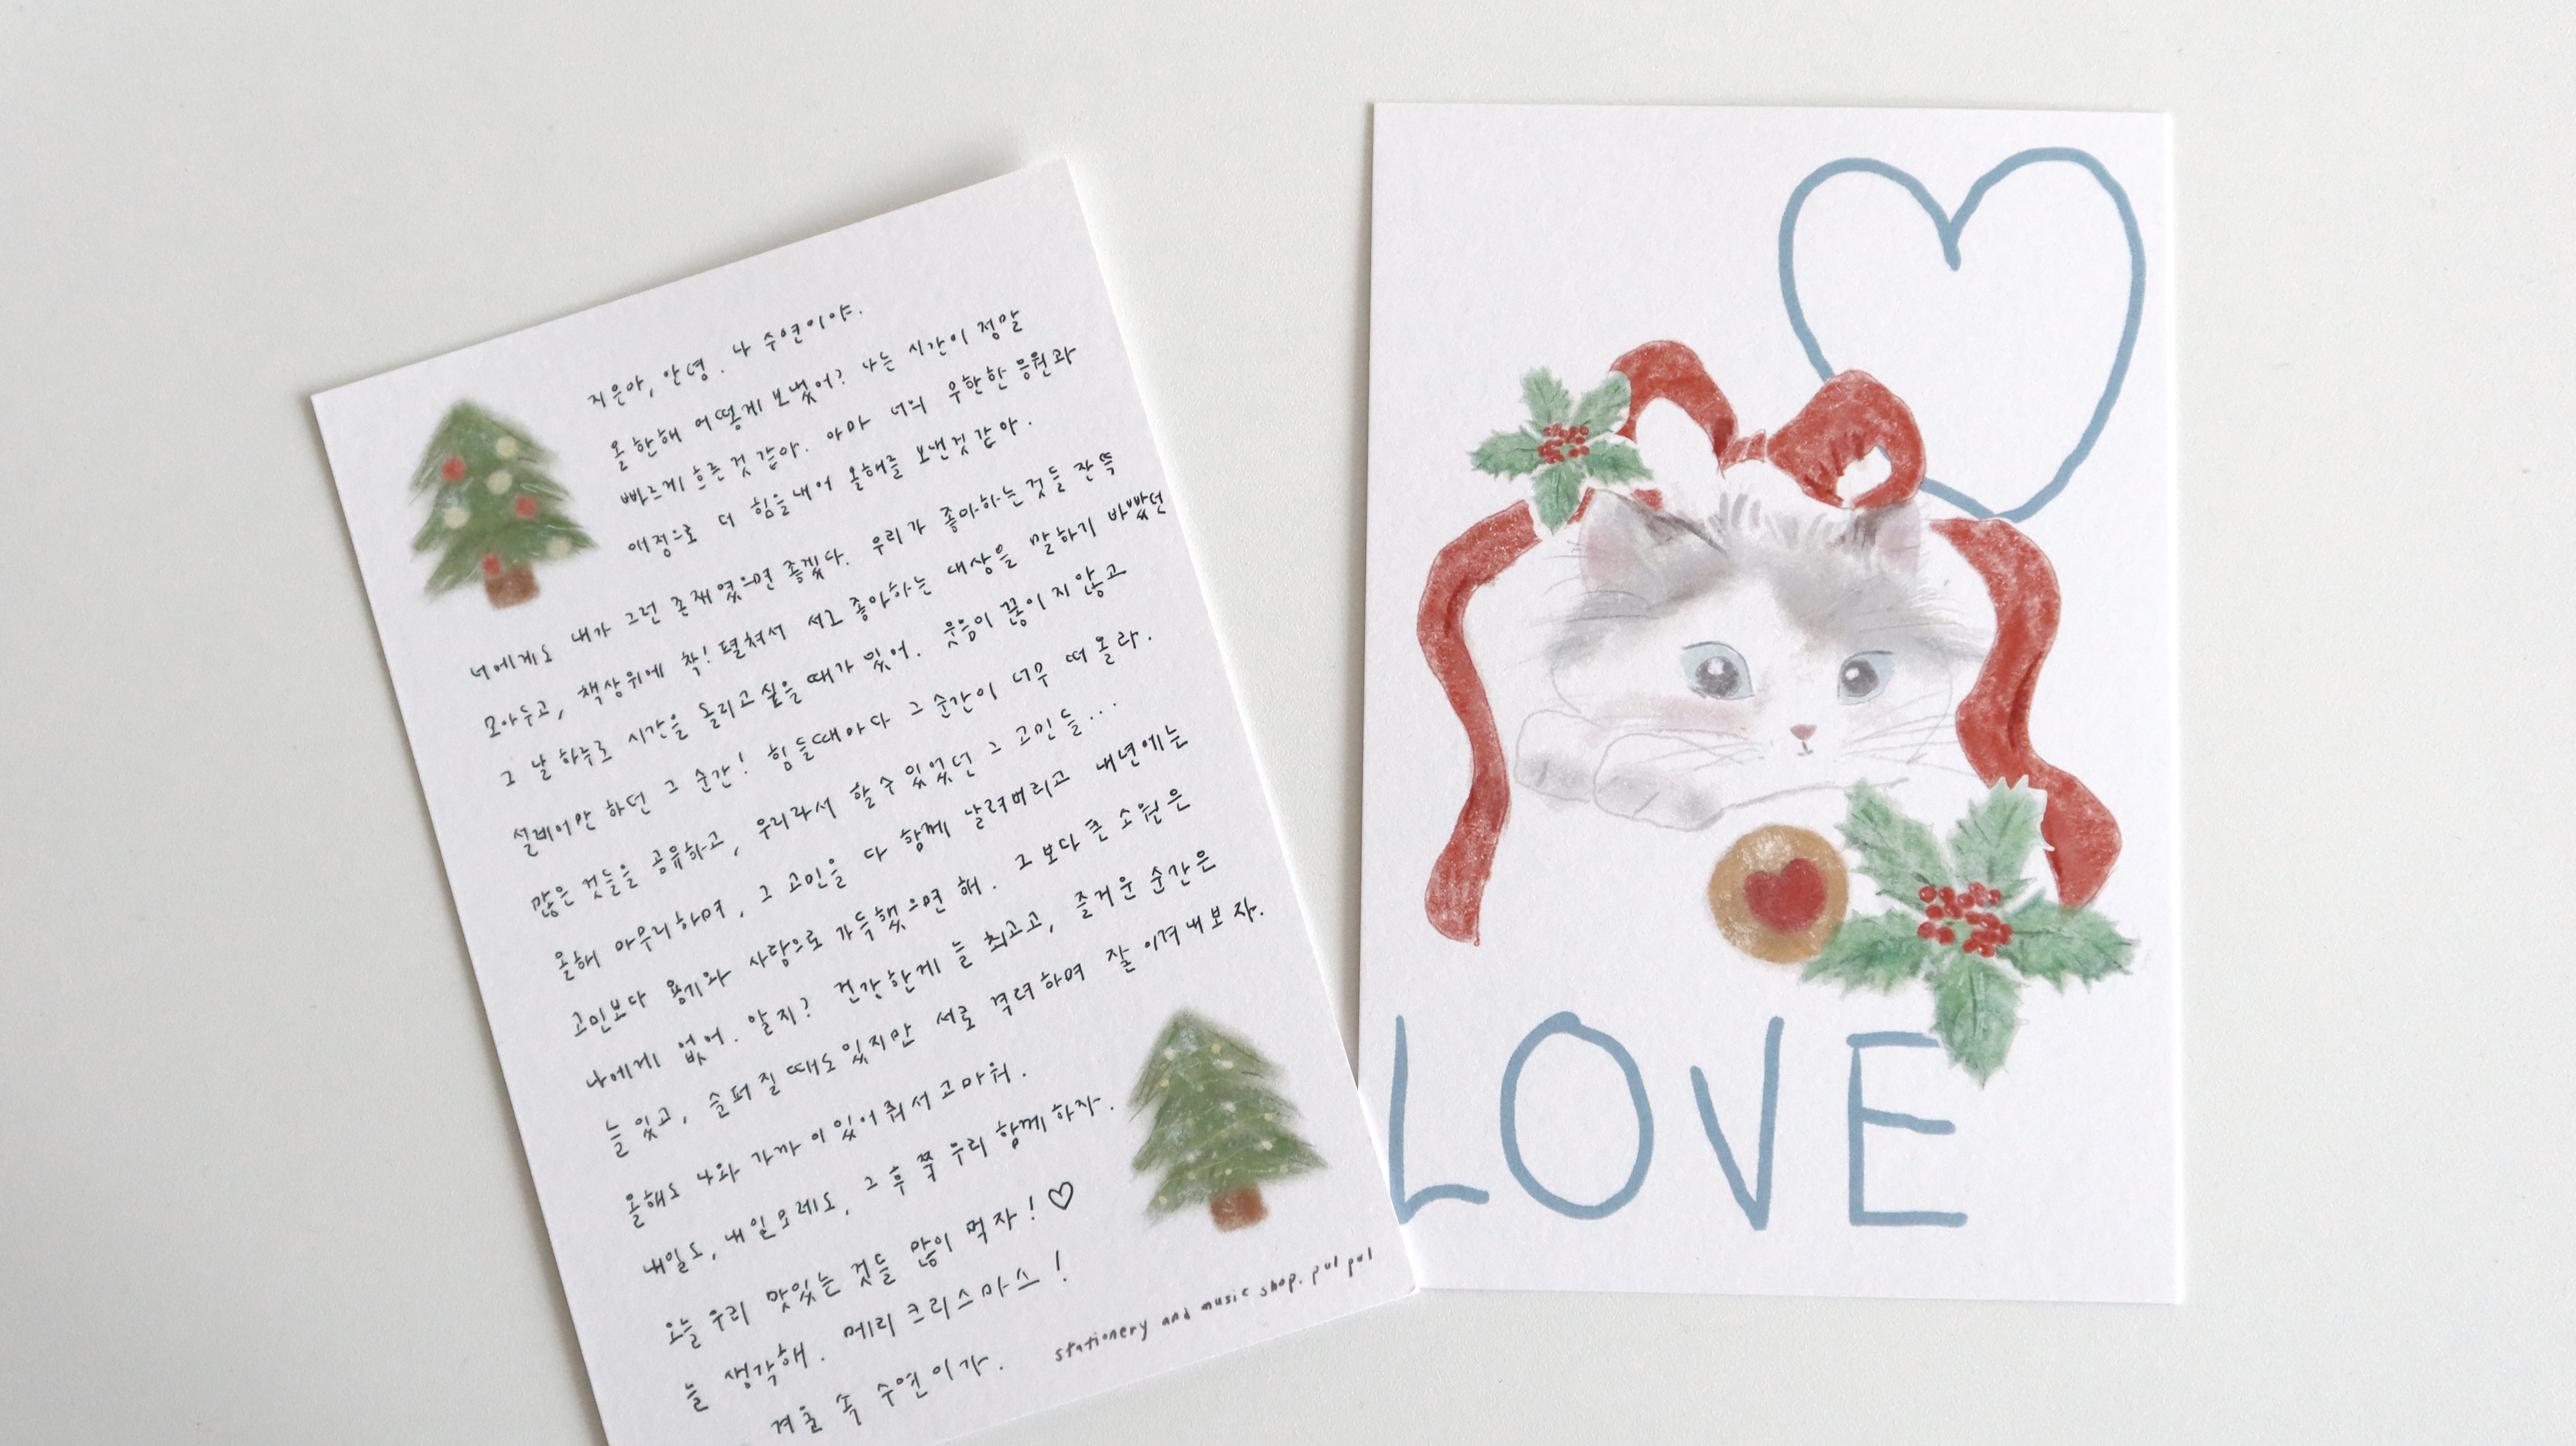 지은아, 안녕. 나 수연이야.
올 한해 어떻게 보냈어? 나는 시간이 정말
빠르게 흐른 것 같아. 아마 너의 무한한 응원과
애정으로 더 힘을내어 올해를 보낸것 같아.
너에게도 내가 그런 존재였으면 좋겠다. 우리가 좋아하는것들 잔뜩
모아두고, 책상위에 착! 펼쳐서 서로 좋아하는 대상을 말하기 바빴던
그 날 하루로 시간을 돌리고싶을때가 있어. 웃음이 끊이지않고
설레어만 하던 그 순간! 힘들때마다 그 순간이 너무 떠올라.
많은 것들을 공유하고, 우리라서 할수있었던 그 고민들...
올해 마무리하며, 그 고민을 다 함께 날려버리고 내년에는
고민보다 용기와 사랑으로 가득했으면 해. 그보다 큰 소원은
나에게 없어. 알지? 건강한게 늘 최고고, 즐거운 순간은
늘 있고, 슬퍼질때도있지만 서로 격려하며 잘 이겨내보자.
올해도 나와 가까이있어줘서 고마워.
내일도, 내일모레도, 그 후 쭉 우리 함께하자.
오늘 우리 맛있는 것들 많이 먹자!
늘 생각해. 메리 크리스마스!
겨울 속 수연이가.
stationery and music shop. pul pul
LOVE